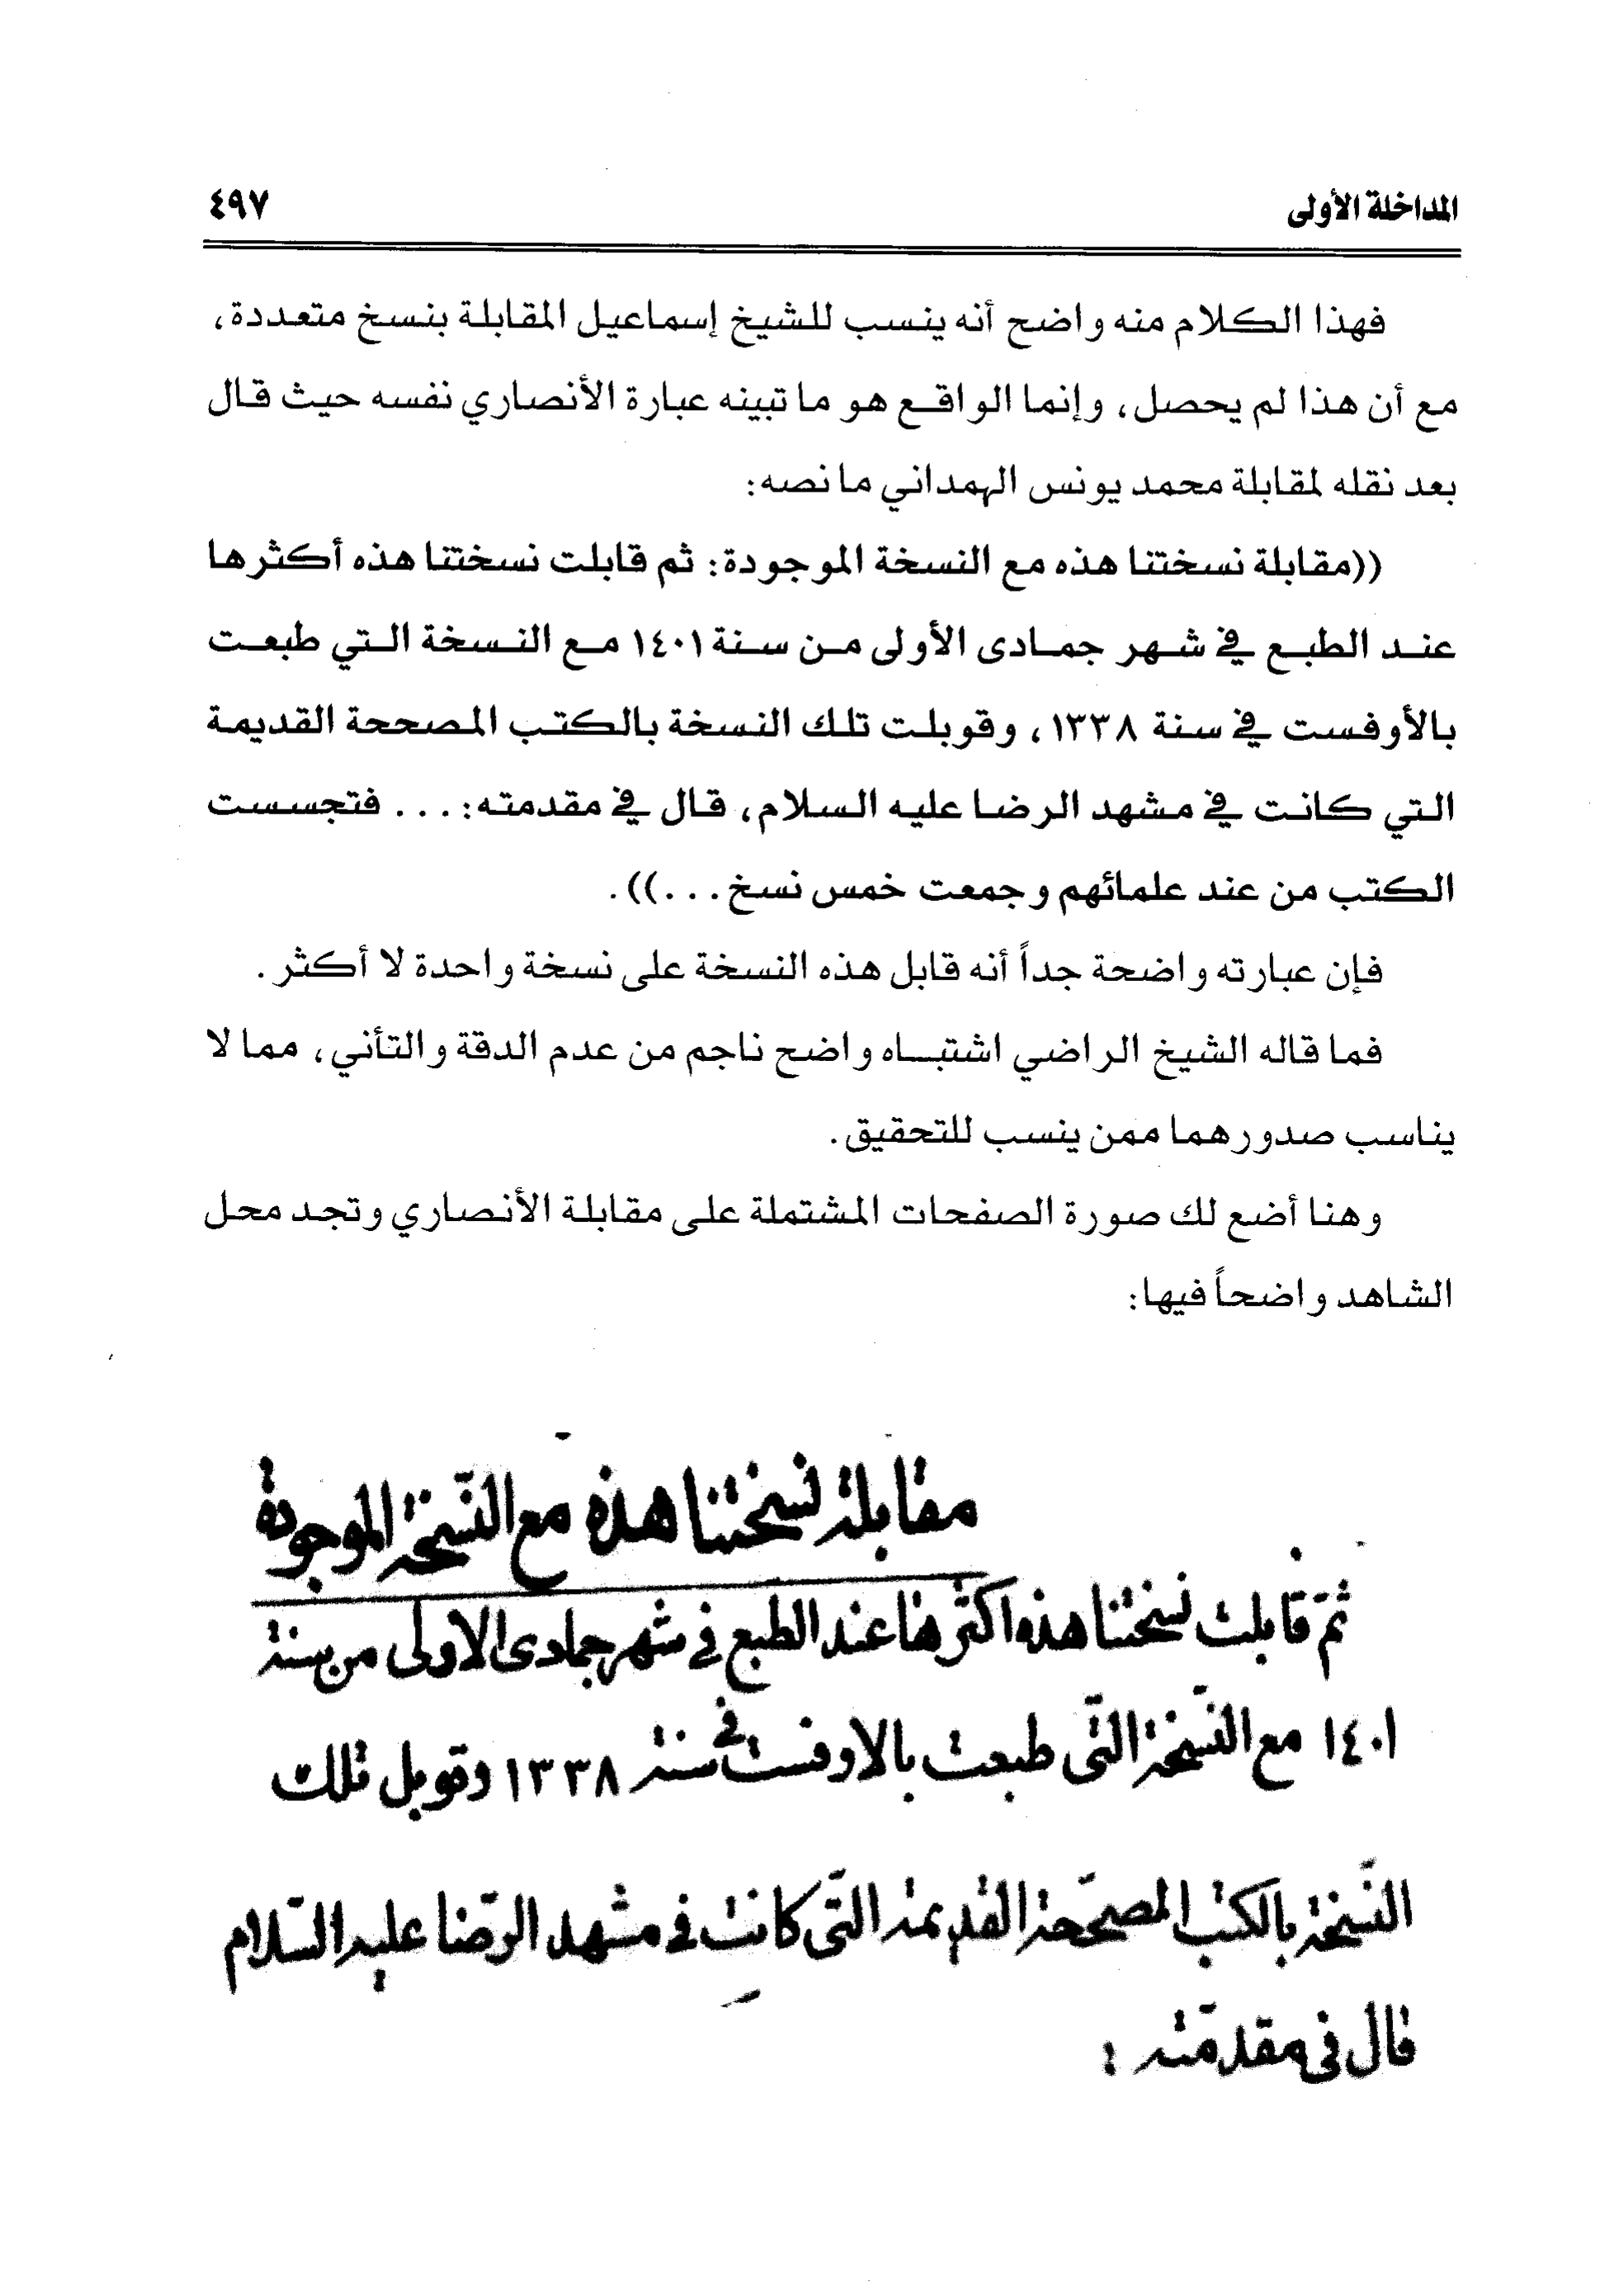 المداخلة الأولى ٤٩٧
فهذا الكلام منه واضح أنه ينسب للشيخ إسماعيل المقابلة بنسخ متعددة،
مع أن هذا لم يحصل، وإنما الواقع هو ما تبينه عبارة الأنصاري نفسه حيث قال
بعد نقله لمقابلة محمد يونس الهمداني ما نصه:
((مقابلة نسختنا هذه مع النسخة الموجودة: ثم قابلت نسختنا هذه أكثرها
عند الطبع في شهر جمادى الأولى من سنة ١٤٠١ مع النسخة التي طبعت
بالأوفست في سنة ١٣٣٨، وقوبلت تلك النسخة بالكتب المصححة القديمة
التي كانت في مشهد الرضا عليه السلام، قال في مقدمته: ... فتجسست
الكتب من عند علمائهم وجمعت خمس نسخ...)).
فإن عبارته واضحة جداً أنه قابل هذه النسخة على نسخة واحدة لا أكثر.
فما قاله الشيخ الراضي اشتباه واضح ناجم من عدم الدقة والتأني، مما لا
يناسب صدورهما ممن ينسب للتحقيق.
وهنا أضع لك صورة الصفحات المشتملة على مقابلة الأنصاري وتجد محل
الشاهد واضحاً فيها:
مقابلة نسختنا هذه مع النّسخة الموجودة
ثمّ قابلت نسختنا هذه اكثرها عند الطبع في شهر جمادى الاولى من سنة
١٤٠١ مع النّسخة التّى طبعت بالاوفست في سنة ١٣٣٨ وقوبل تلك
النّسخة بالكتب المصحّحة القديمة التّى كانت في مشهد الرّضا عليه السّلام
قال في مقدّمته :